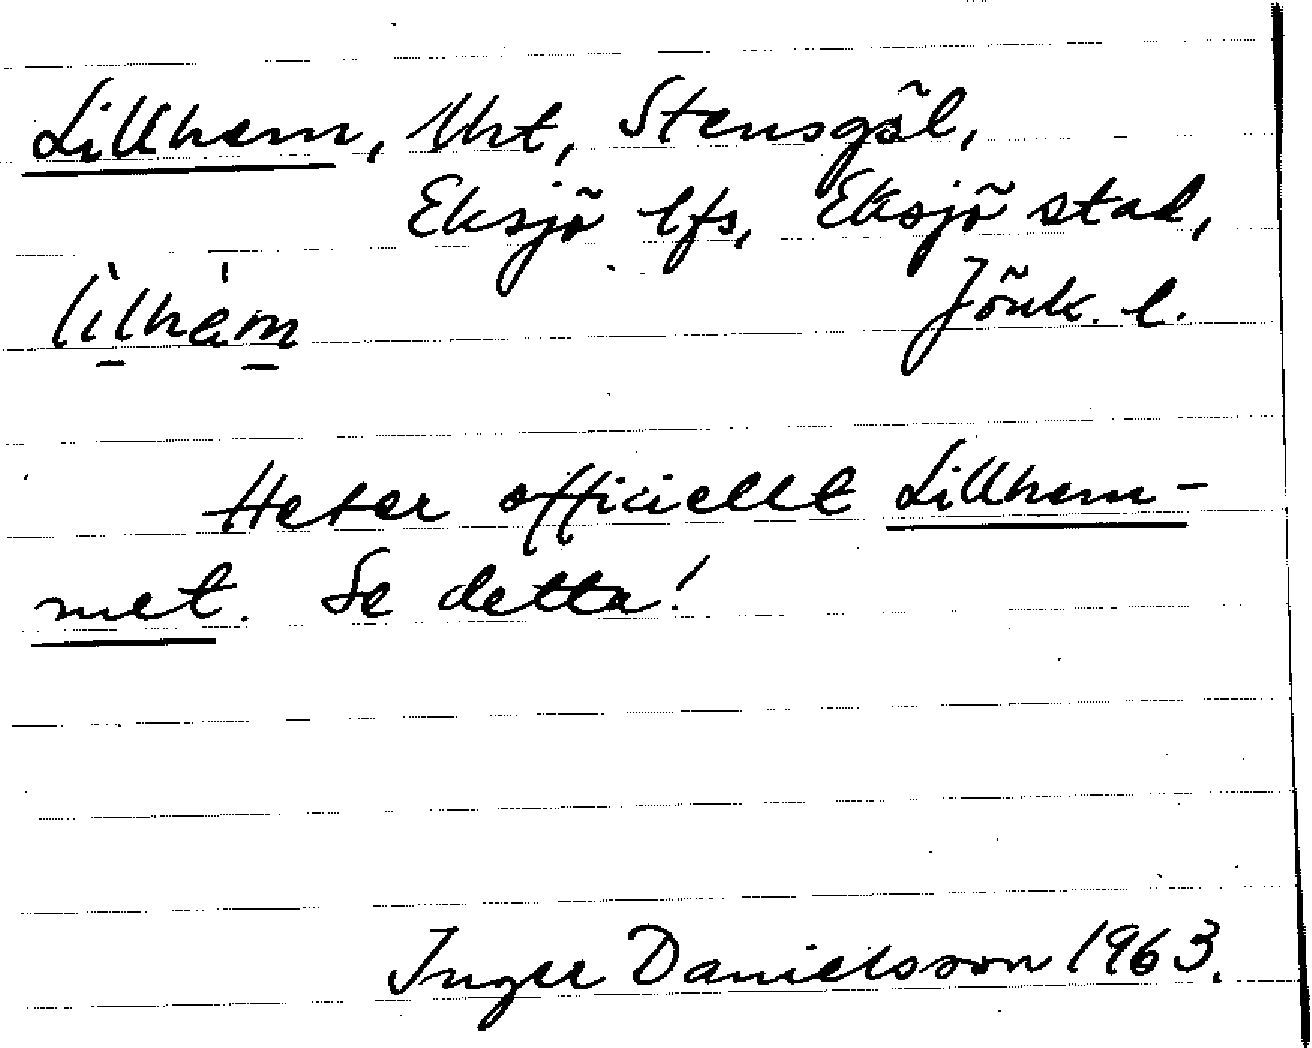 Lillhem, Uht, Stensgöl,
Eksjö lfs, Eksjö stad,
lìlhèm Jönk. l.
Heter officiellt Lillhem-
met. Se detta!
Inger Danielsson 1963.